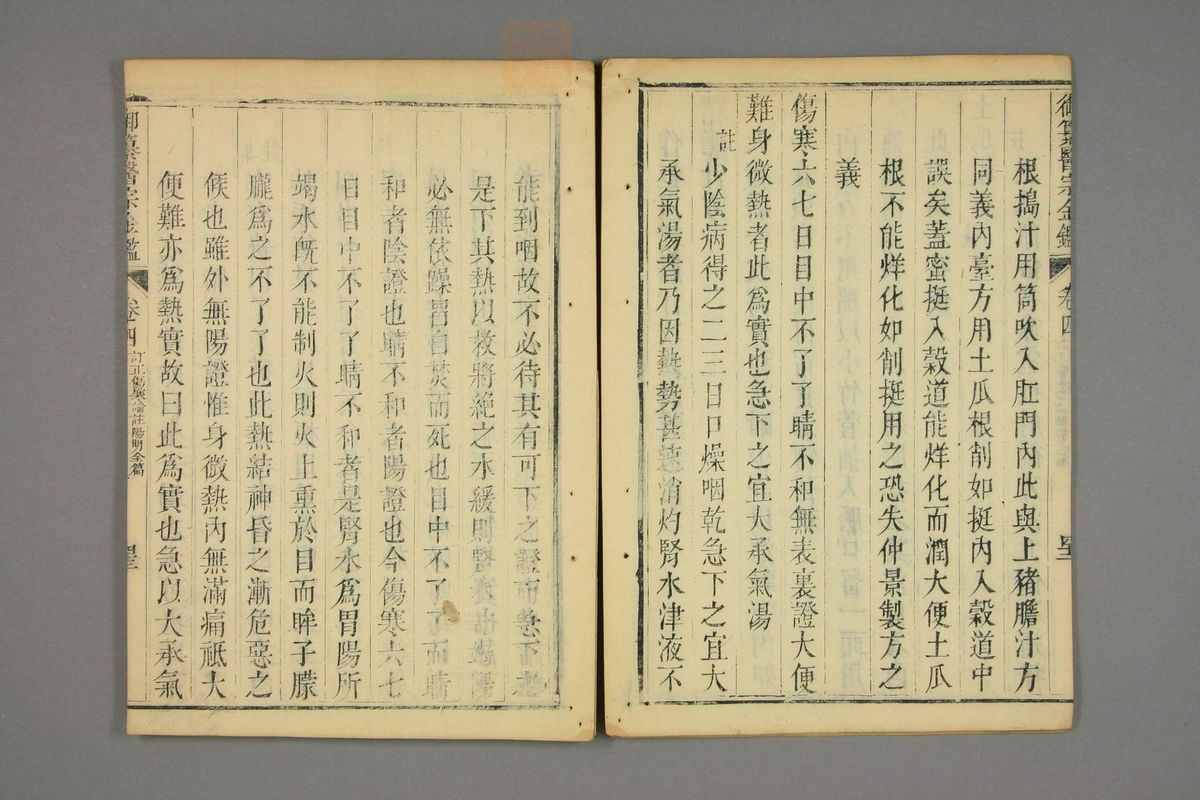 御纂醫宗金鑑 卷四
根搗汁用筒吹入肛門內此與上豬膽汁方
同義內臺方用土瓜根削如挺內入穀道中
誤矣蓋蜜挺入穀道能烊化而潤大便土瓜
根不能烊化如削挺用之恐失仲景製方之
義
傷寒六七日目中不了了睛不和無表裏證大便
難身微熱者此爲實也急下之宜大承氣湯
註少陰病得之二三日口燥咽乾急下之宜大
承氣湯者乃因熱勢甚速消灼腎水津液不
能到咽故不必待其有可下之證而急下之
是下其熱以救將絕之水緩則腎水竭
必無依躁胃自焚而死也目中不了了而睛
和者陰證也睛不和者陽證也今傷寒六七
日目中不了了睛不和者是腎水爲胃陽所
竭水旣不能制火則火上熏於目而眸子朦
朧爲之不了了也此熱結神昏之漸危惡之
候也雖外無陽證惟身微熱內無滿痛祗大
便難亦爲熱實故曰此爲實也急以大承氣
御纂醫宗金鑑 卷四 訂正傷寒論註陽明全篇